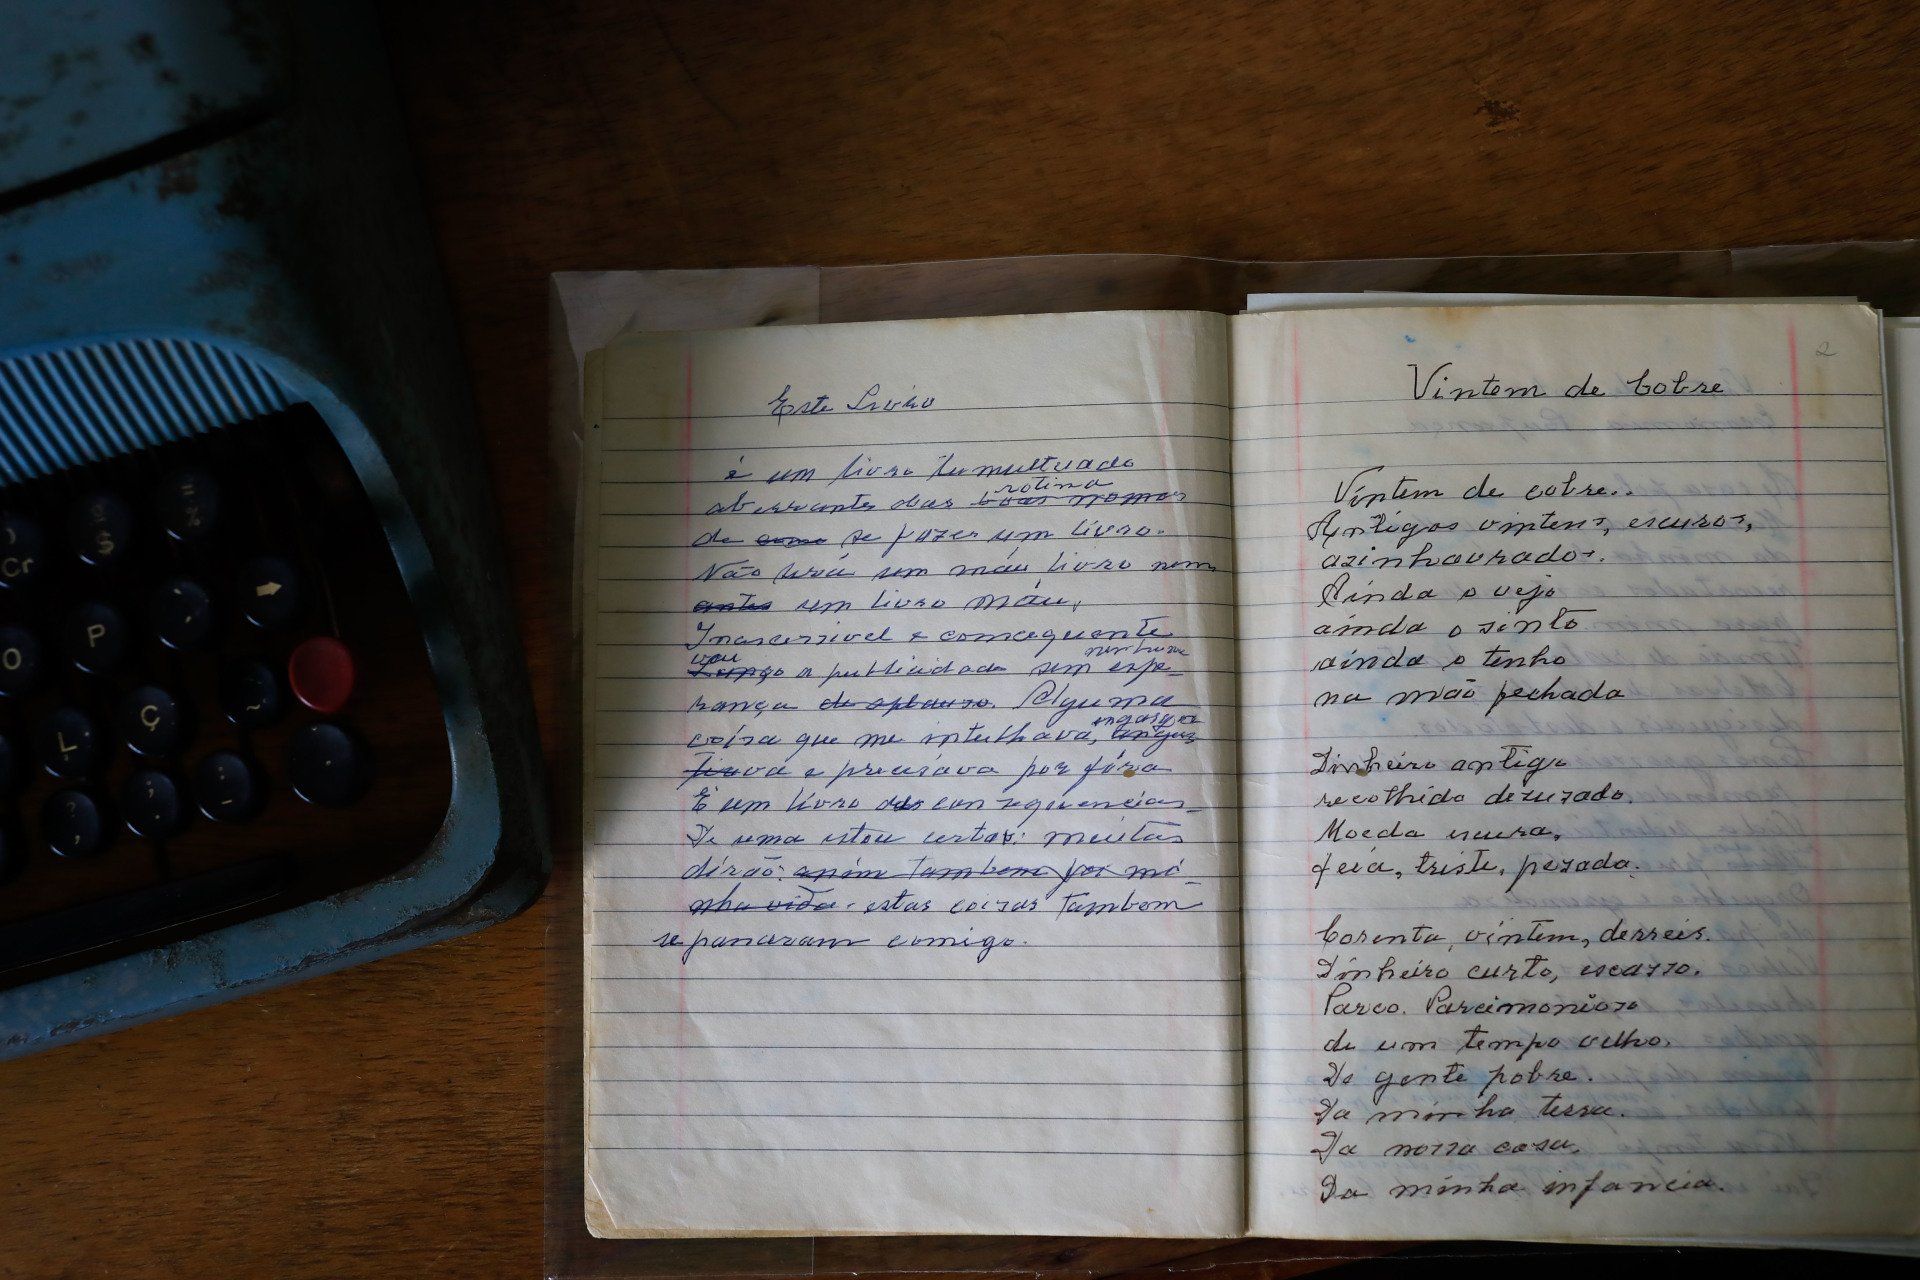 Este Livro
é um livro tumultuado
aberrante das boas normas
rotina
de como se fazer um livro.
Não será um máu livro nem
antes um livro máu.
Inascessivel e consequente
vou
nenhuma
Lanço a publicidade sem espe-
rança de aplauso. Alguma
coisa que me intulhava,
engasga
va e precisava por fóra
É um livro das consequencias
De uma estou certa: muitas
dirão: assim tambem foi mi-
nha vida. estas coisas tambem
se pasaram comigo.
2
Vintem de Cobre
Vintem de cobre..
Antigos vintens, escuros,
azinhavrados.
Ainda o vejo
ainda o sinto
ainda o tenho
na mão fechada
Dinheiro antigo
recolhido dezuzado.
Moeda escura,
feia, triste, pezada.
Corenta, vintem, derreis.
Dinheiro curto, escasso.
Parco. Parcimonioso
de um tempo velho.
De gente pobre.
Da minha terra.
Da nossa casa.
Da minha infancia.
Cr
$
%
P
O
Ç
L